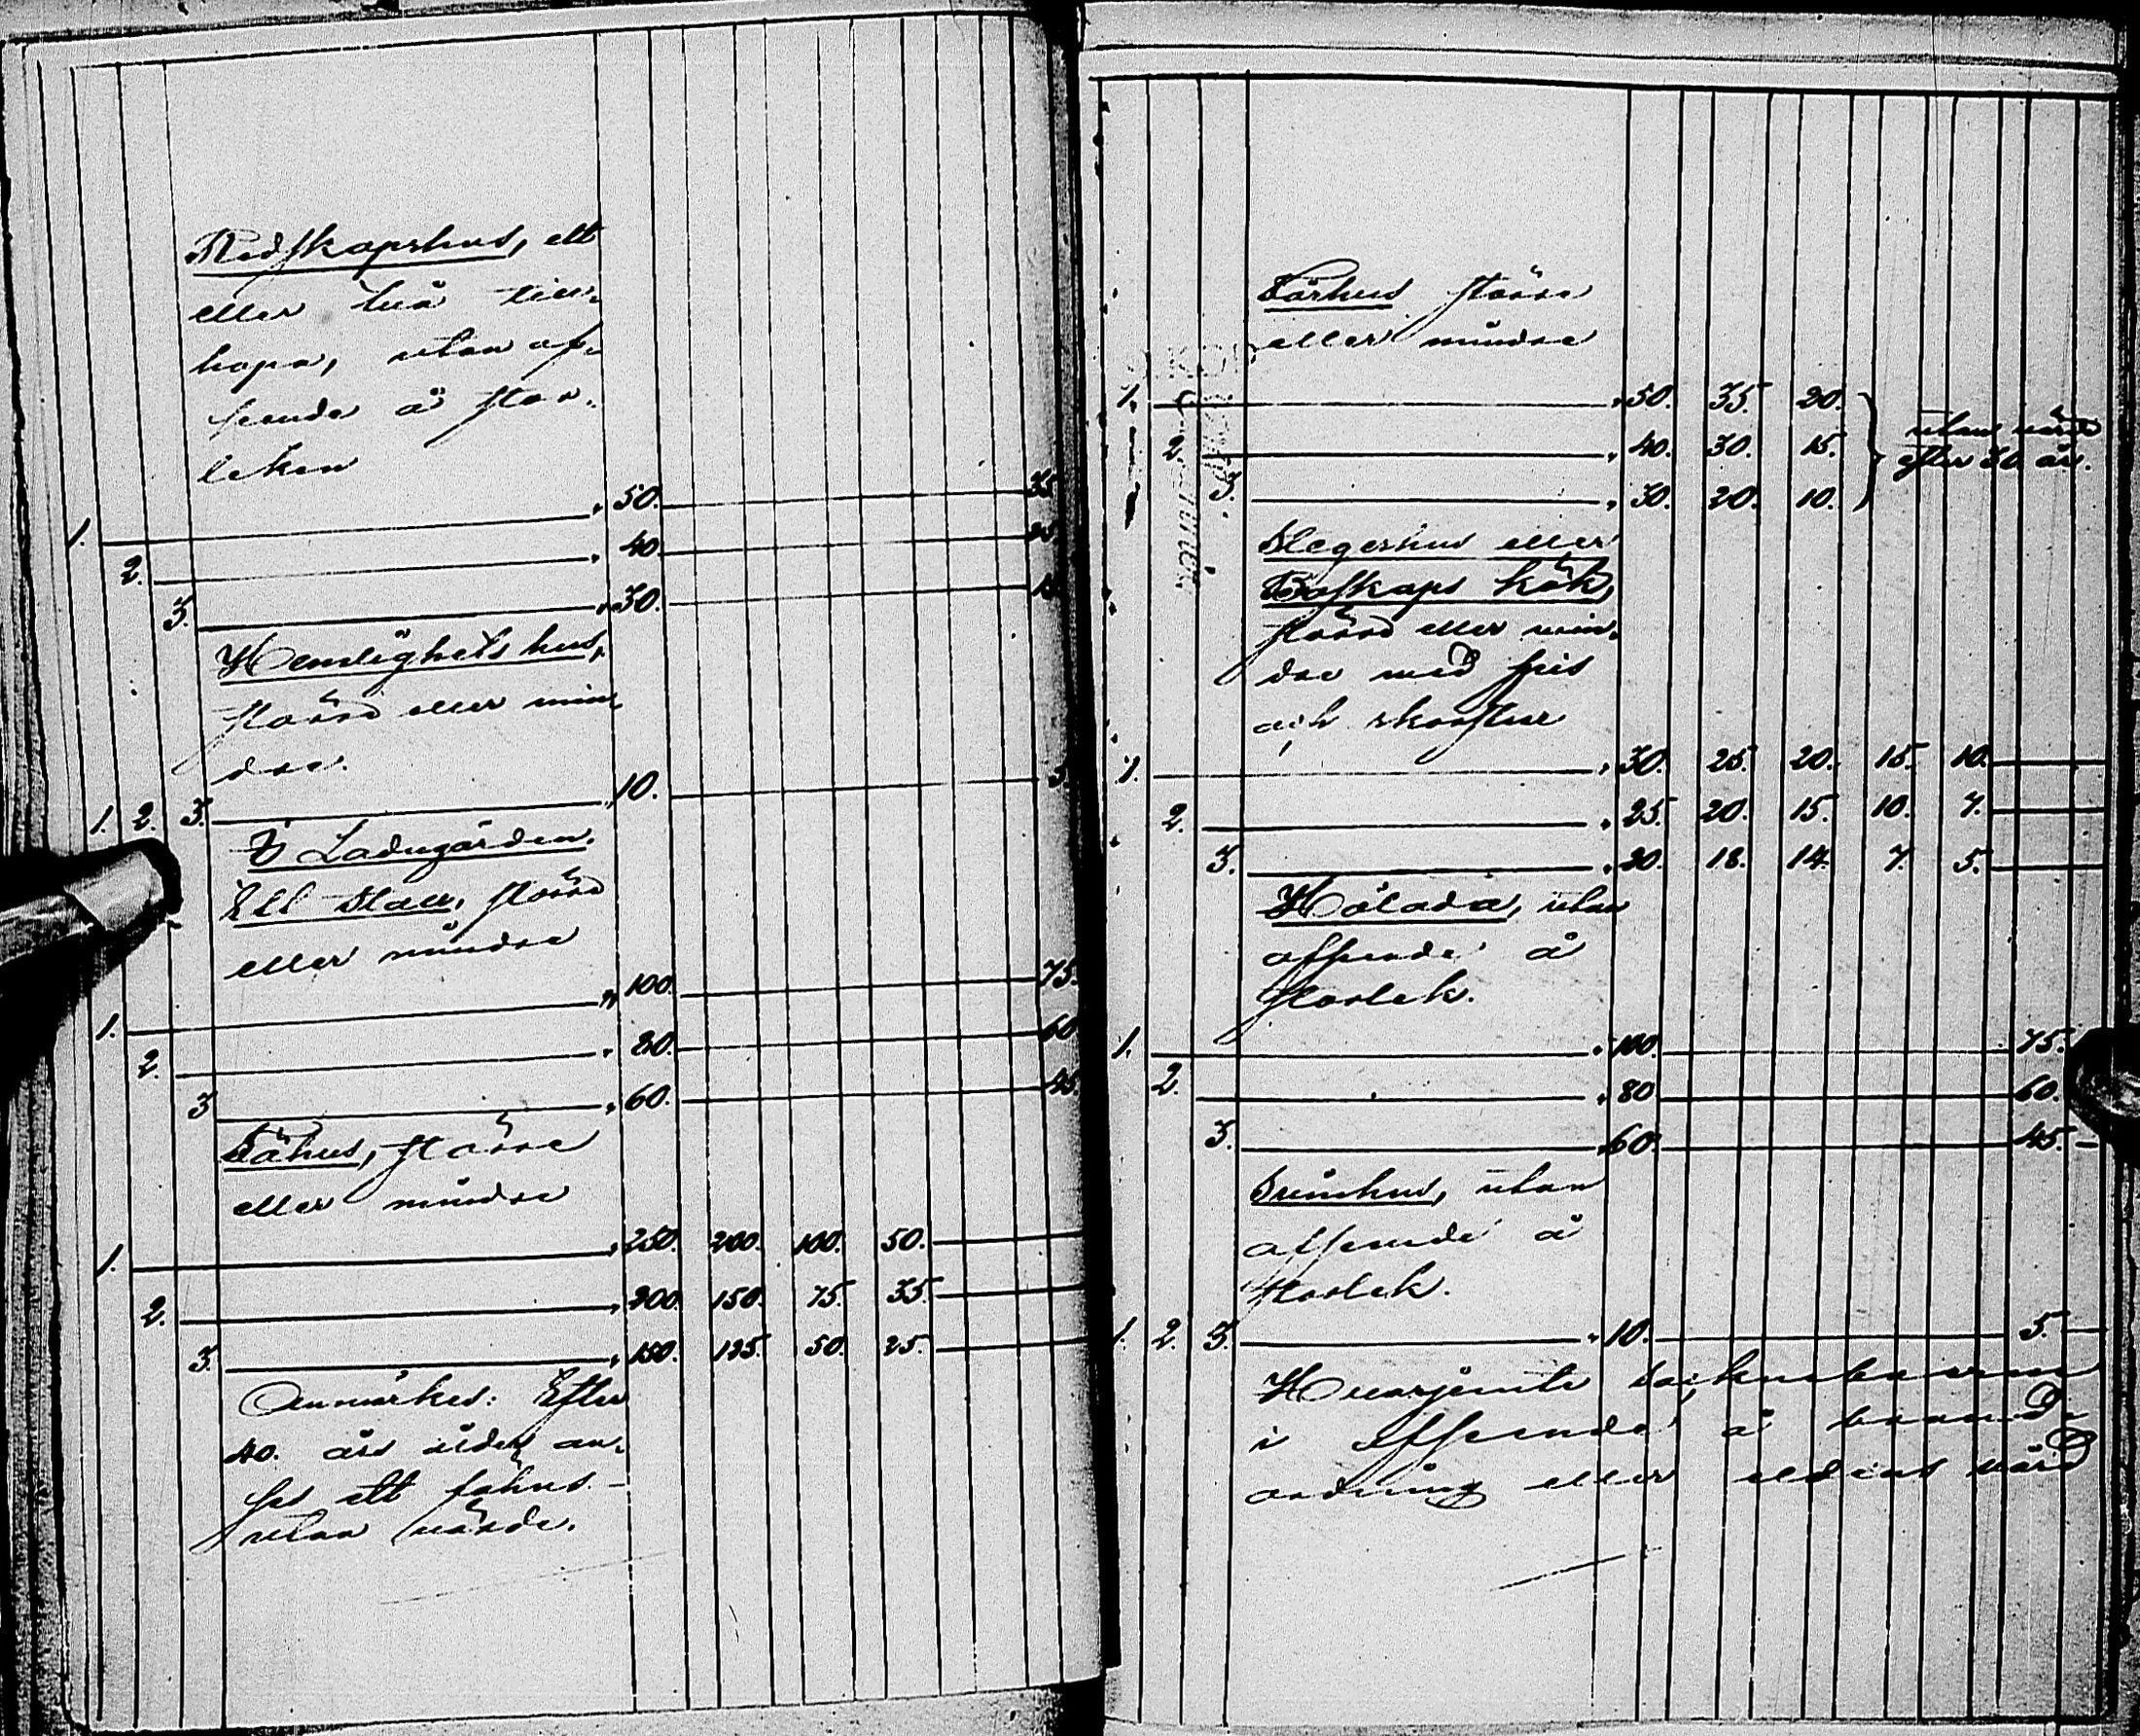 Redskapshus, ett
eller två till-
hopa, utan af-
seende å stor-
leken
1. " 50. 35
2. " 40 25
3. " 30. 15
Hemlighets hus,
större eller min
dre.
1. 2. 3. " 10. 5
I Ladugården.
Ett Stall, större
eller mindre
1. " 100. 75.
2. " 80. 60
3 " 60. 45.
Fähus, större
eller mindre
1. " 250. 200. 100. 50.
2. " 200. 150. 75. 35.
3. " 150. 125. 50. 25.
Anmärkes: Efter
40. års ålder an-
ses ett fähus
utan värde.
Fårhus större
eller mindre
1. " 50. 35. 20.
2. " 40. 30. 15. utan värde
3. " 30. 20. 10. efter 30 år.
Slegershus eller
Boskaps kök,
större eller min-
dre med spis
och skorsten
1. " 30. 25. 20. 15. 10.
2. " 25. 20. 15. 10. 7.
3. " 20. 18. 14. 7. 5.
Hölada, utan
afseende å
storlek.
1. " 100. 75.
2. " 80 60.
3. " 60. 45.
Svinhus, utan
afseende å
storlek.
1. 2. 3. " 10. 5.
Hvarjemte Sockneboerne
i afseende å brand-
ordning eller eldens vård